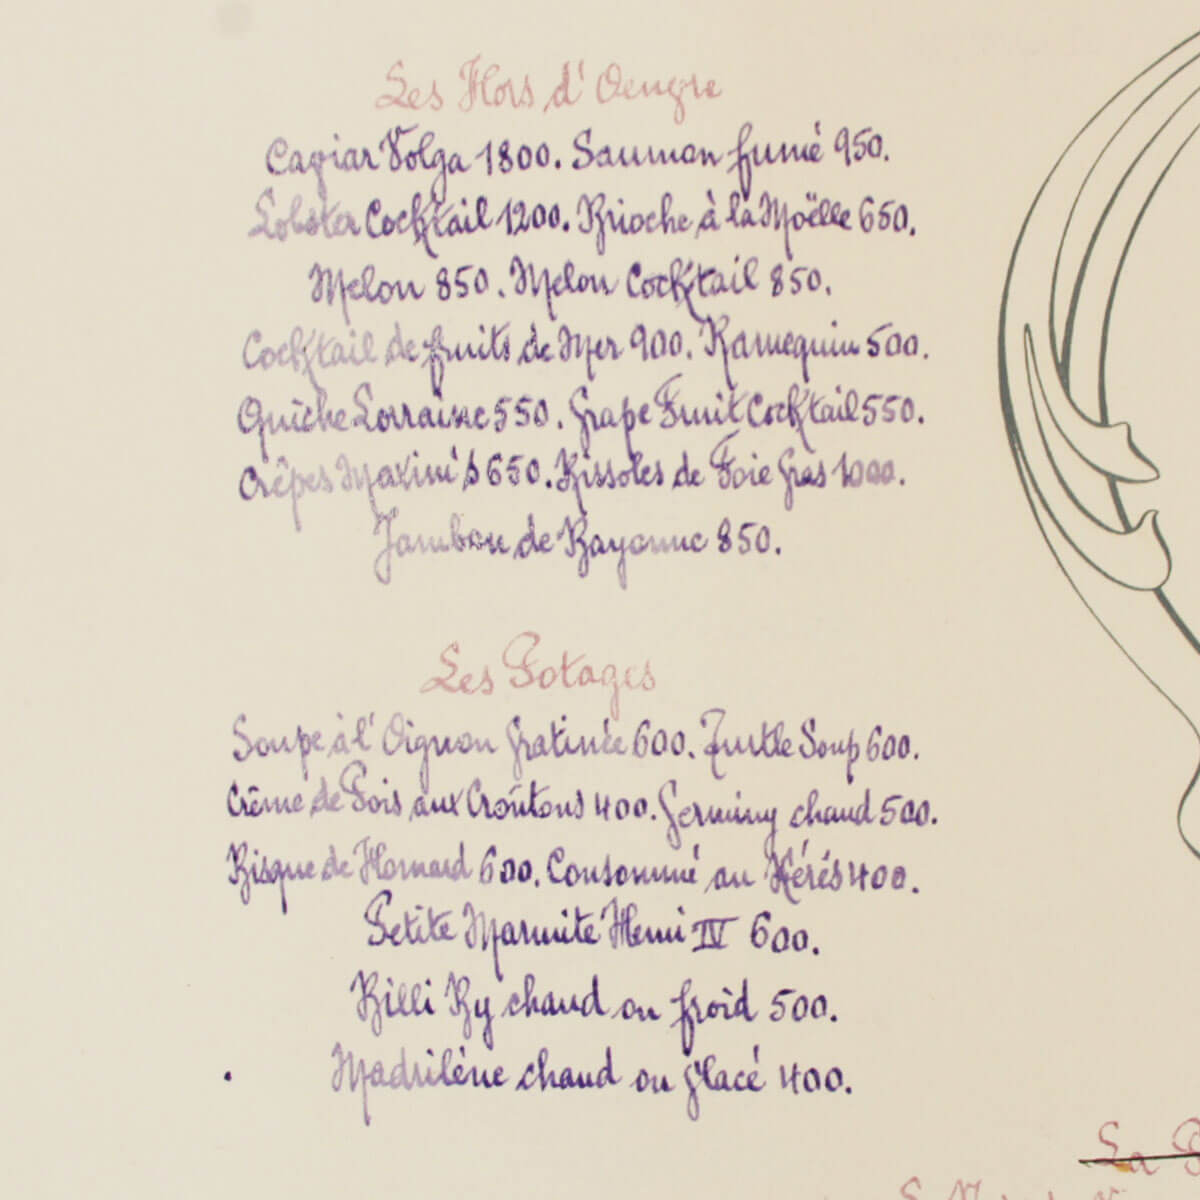 Les Hors d'Oeuvre
Caviar Volga 1800. Saumon fumé 950.
Lobster Cocktail 1200. Brioche à la Moëlle 650.
Melon 850. Melon Cocktail 850.
Cocktail de fruits de Mer 900. Ramequin 500.
Quîche Lorraine 550. Grape Fruit Cocktail 550.
Crêpes Maxim's 650. Rissoles de Foie Gras 1000.
Jambon de Bayonne 850.
Les Potages
Soupe à l'Oignon Gratinée 600. Turtle Soup 600.
Crème de Pois aux Croûtons 400. Germiny chaud 500.
Bisque de Homard 600. Consommé au Xérés 400.
Petite Marmite Henri IV 600.
Billi By chaud ou froid 500.
Madrilène chaud ou glacé 400.
La